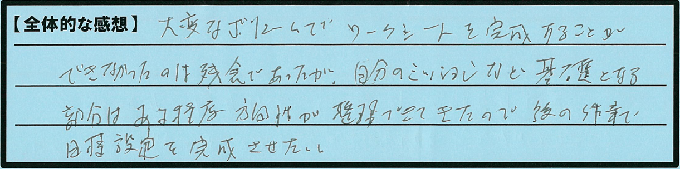 【全体的な感想】 大変なボリュームでワークシートを完成することが
できなかったのは残念であったが、自分のミッションなど基礎となる
部分はある程度方向性が整理できてきたので後の作業で
目標設定を完成させたい。